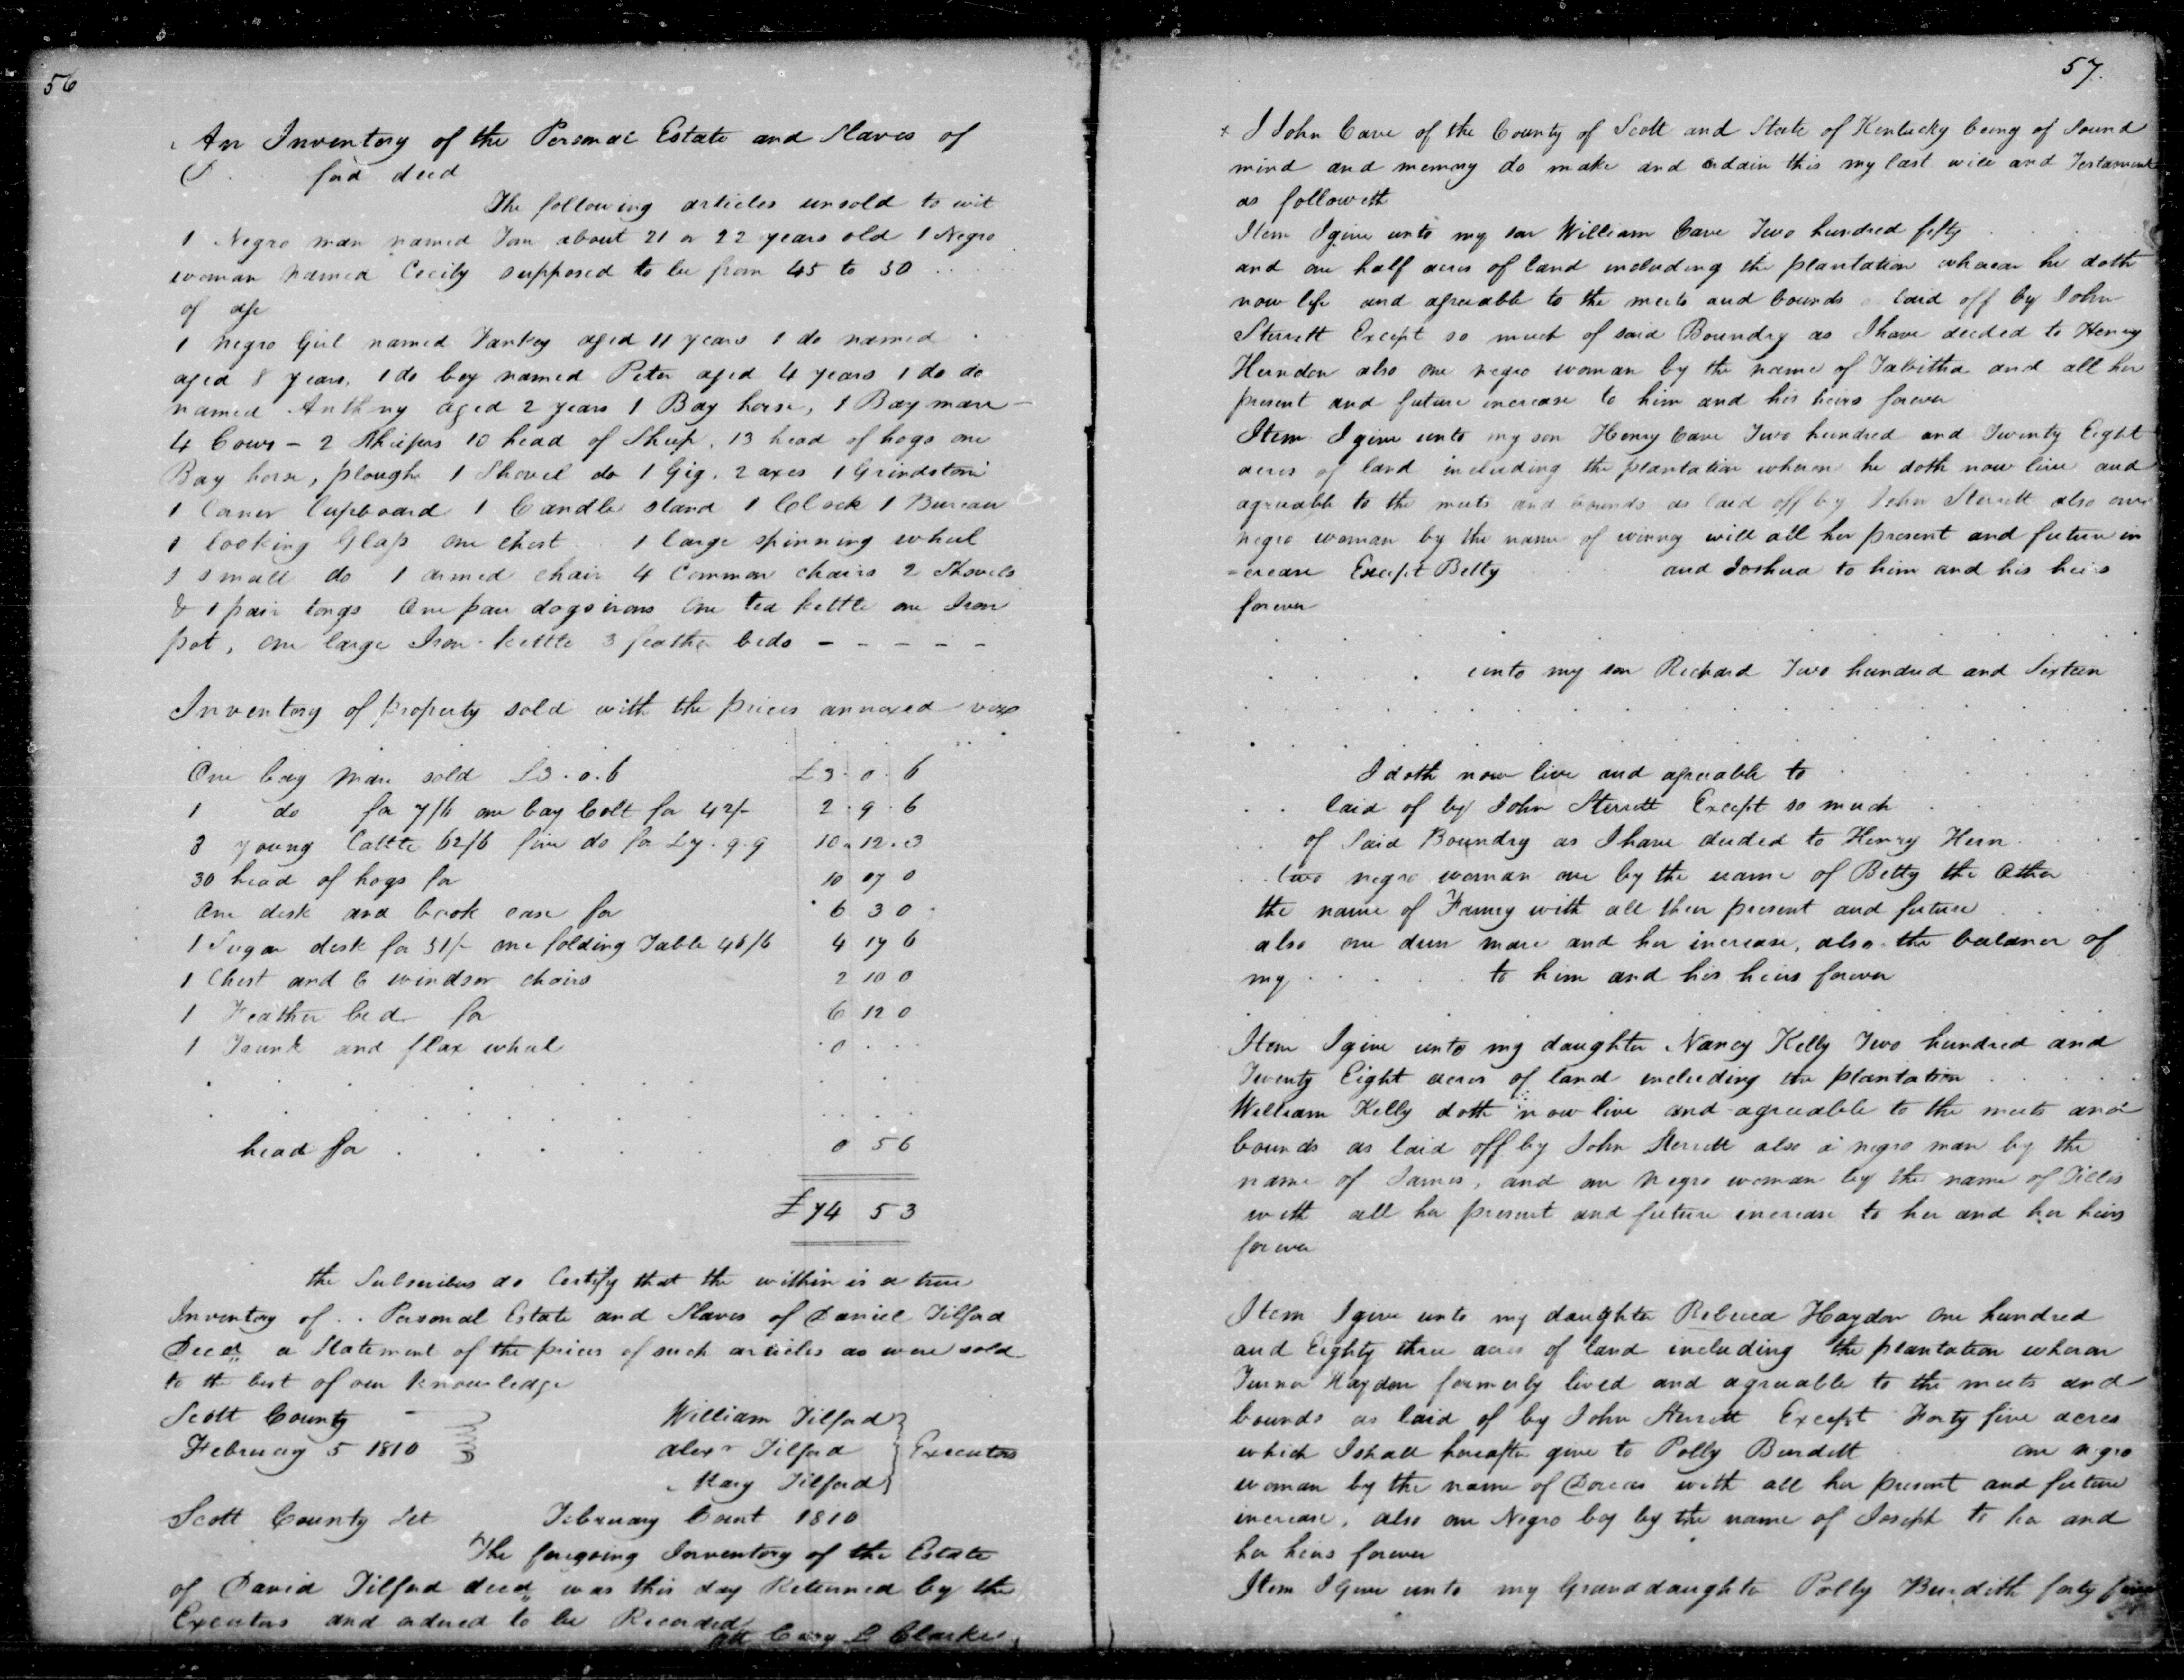 56
An Inventory of the Personal Estate and Slaves of
D . . ford decd
The following articles unsold to wit
1 Negro man named about 21 or 22 years old 1 Negro
woman named Cecily supposed to be from 45 to 50 . .
of age
1 negro Girl named Jankey aged 11 years 1 do named .
aged 8 years, 1 do boy named Peter aged 4 years 1 do do
named Anthony aged 2 years 1 Bay horse, 1 Bay mare -
4 Cows - 2 10 head of Sheep, 13 head of hogs one
Bay horse, plough 1 Shovel do 1 Gig, 2 axes 1 Grindstone
1 Corner Cupboard 1 Candle stand 1 Clock 1 Bureau
1 looking Glass one chest . . 1 large spinning wheel
1 small do 1 armed chair 4 Common chairs 2 Shovels
& 1 pair tongs One pair dogs irons One tea kettle one Iron
pot, one large Iron kettle 3 feather beds - - - - -
Inventory of property sold with the prices annexed viz
One bay Mare sold £3. 0. 6 £3. 0. 6
1 do for 7/6 one bay Colt for 42/- 2. 9. 6
3 young Cattle 62/6 five do for £7. 9. 9 10. 12. 3
30 head of hogs for 10 07 0
One desk and book case for 6 3 0
1 Sugar desk for 51/- one folding Table 46/6 4 17 6
1 Chest and 6 windsor chairs 2 10 0
1 Feather bed for 6 12 0
1 Trunk and flax wheel . 0 . .
head for . . . . . 0 5 6
£74 5 3
the Subscribers do Certify that the within is a true
Inventory of . . Personal Estate and Slaves of Daniel Tilford
Decd a Statement of the prices of such articles as were sold
to the best of our knowledge
Scott County William Tilford
February 5 1810 Alexr Tilford } Executors
Mary Tilford
Scott County Sct February Court 1810
The foregoing Inventory of the Estate
of David Tilford decd was this day Returned by the
Executors and ordered to be Recorded
att Cary L Clarke
57.
x I John Cave of the County of Scott and State of Kentucky being of Sound
mind and memory do make and ordain this my last will and Testament
as followeth
Item I give unto my son William Cave Two hundred fifty
and one half acres of land including the plantation whareon he doth
now life and agreeable to the meets and bounds laid off by John
Sterrett Except so much of said Boundry as I have deeded to Henry
Herndon also one negro woman by the name of Tabitha and all her
present and future increase to him and his heirs forever
Item I give unto my son Henry Cave Two hundred and Twenty Eight
acres of land including the plantation wheron he doth now live and
agreeable to the meets and bounds as laid off by John Sterrett also one
negro woman by the name of winney will all her present and future in
=crease Except Betty and Joshua to him and his heirs
forever
. . . . unto my son Richard Two hundred and Sixteen
I doth now live and agreeable to .
. . laid of by John Sterrett Except so much .
. . of Said Boundry as I have deeded to Henry Hern .
. . two negro woman one by the name of Betty the Other
the name of Fanney with all their present and future
also one dun mare and her increase, also the balance of
my . . . . . to him and his heirs forever
Item I give unto my daughter Nancy Kelly Two hundred and
Twenty Eight acres of land including the plantation . . .
William Kelly doth now live and agreeable to the meets and
bounds as laid off by John Sterrett also a negro man by the
name of James, and one negro woman by the name of Tilles
with all her present and future increase to her and her heirs
forever
Item I give unto my daughter Rebecca Haydon One hundred
and Eighty three acres of land including the plantation wheron
Turner Haydon formerly lived and agreeable to the meets and
bounds as laid of by John Sterrett Except Forty five acres
which I shall hereafter give to Polly Burdett one negro
woman by the name of Dorcas with all her present and future
increase, also one Negro boy by the name of Joseph to her and
her heirs forever
Item I Give unto my Granddaughter Polly Burdith forty five